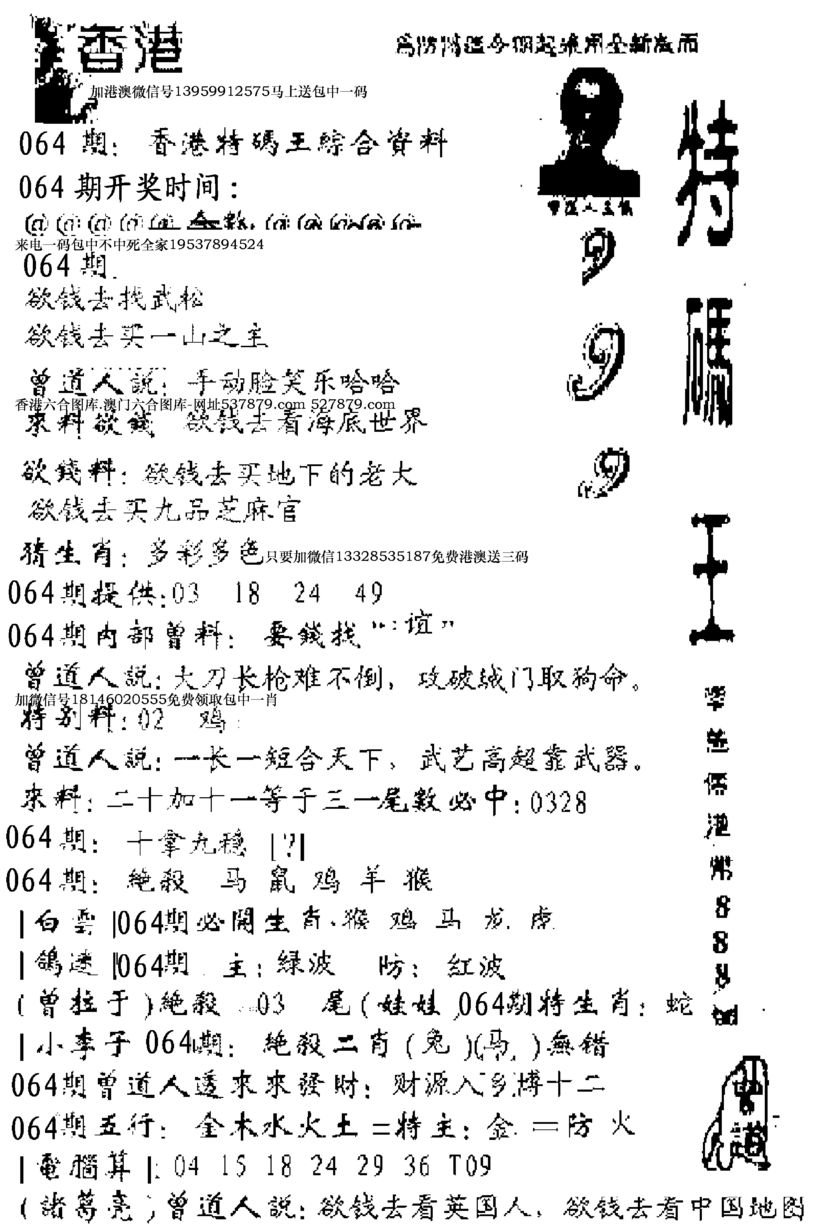 香港
加港澳微信号13959912575马上送包中一码
064 期: 香港特碼王綜合資料
064 期开奖时间:
来电一码包中不中死全家19537894524
064 期
欲钱去找武松
欲钱去买一山之主
曾道人説: 手动脸笑乐哈哈
香港六合图库.澳门六合图库-网址537879.com 527879.com
來料欲錢 欲钱去看海底世界
欲錢料: 欲钱去买地下的老大
欲钱去买九品芝麻官
猜生肖: 多彩多色
只要加微信13328535187免费港澳送三码
064期提供:03 18 24 49
064期内部曾料: 要錢找“:谊”
曾道人説: 大刀长枪难不倒, 攻破城门取狗命。
加微信号18146020555免费领取包中一肖
特别料:02 鸡
曾道人説: 一长一短合天下, 武艺高超靠武器。
來料: 二十加十一等于三一尾數必中:0328
064期: 十拿九穩 |?|
064期: 絶殺 马 鼠 鸡 羊 猴
|白雲|064期必開生肖.猴 鸡 马 龙 虎
064期 主: 緑波 防: 红波
(曾拉于)絶殺 03 尾(娃娃)064期特生肖: 蛇
|小李子 064期: 絶殺二肖(兔)(马)無错
064期曾道人透來來發財: 财源入乡博十二
064期五行: 金木水火土=特主: 金=防 火
|電腦算|: 04 15 18 24 29 36 T09
(諸葛亮)曾道人説: 欲钱去看英国人, 欲钱去看中国地图
曾道人玉像
9
9
9
特
碼
王
港
幣
8
8
8